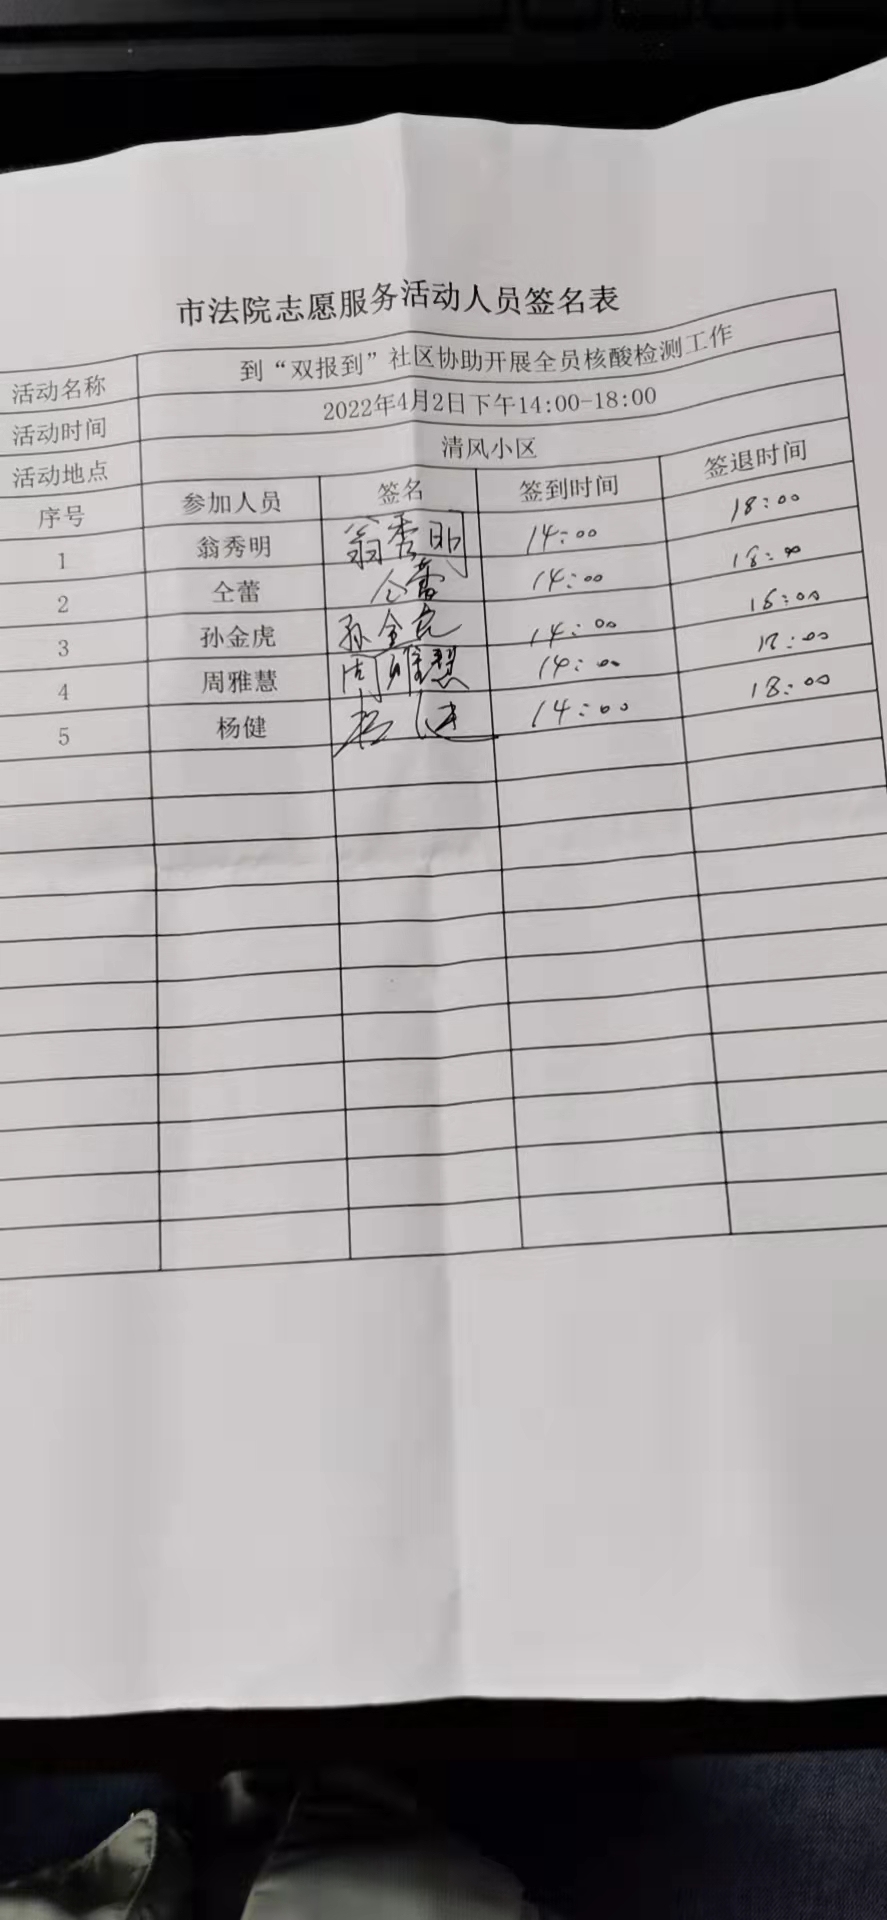 市法院志愿服务活动人员签名表
活动名称 到“双报到”社区协助开展全员核酸检测工作
活动时间 2022年4月2日下午14:00-18:00
活动地点 清风小区
序号 参加人员 签名 签到时间 签退时间
1 翁秀明 翁秀明 14:00 18:00
2 仝蕾 仝蕾 14:00 18:00
3 孙金虎 孙金虎 14:00
4 周雅慧 周雅慧 14:00
5 杨健 杨健 14:00 18:00